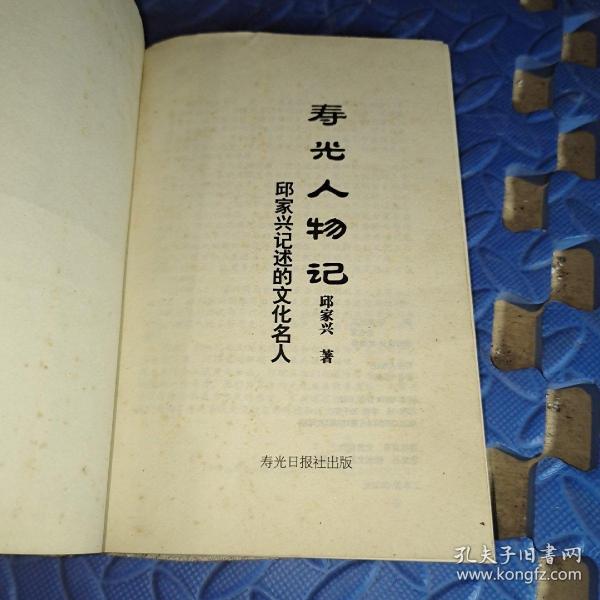 寿光人物记
邱家兴 著
邱家兴记述的文化名人
寿光日报社出版
孔夫子旧书网
www.kongfz.com